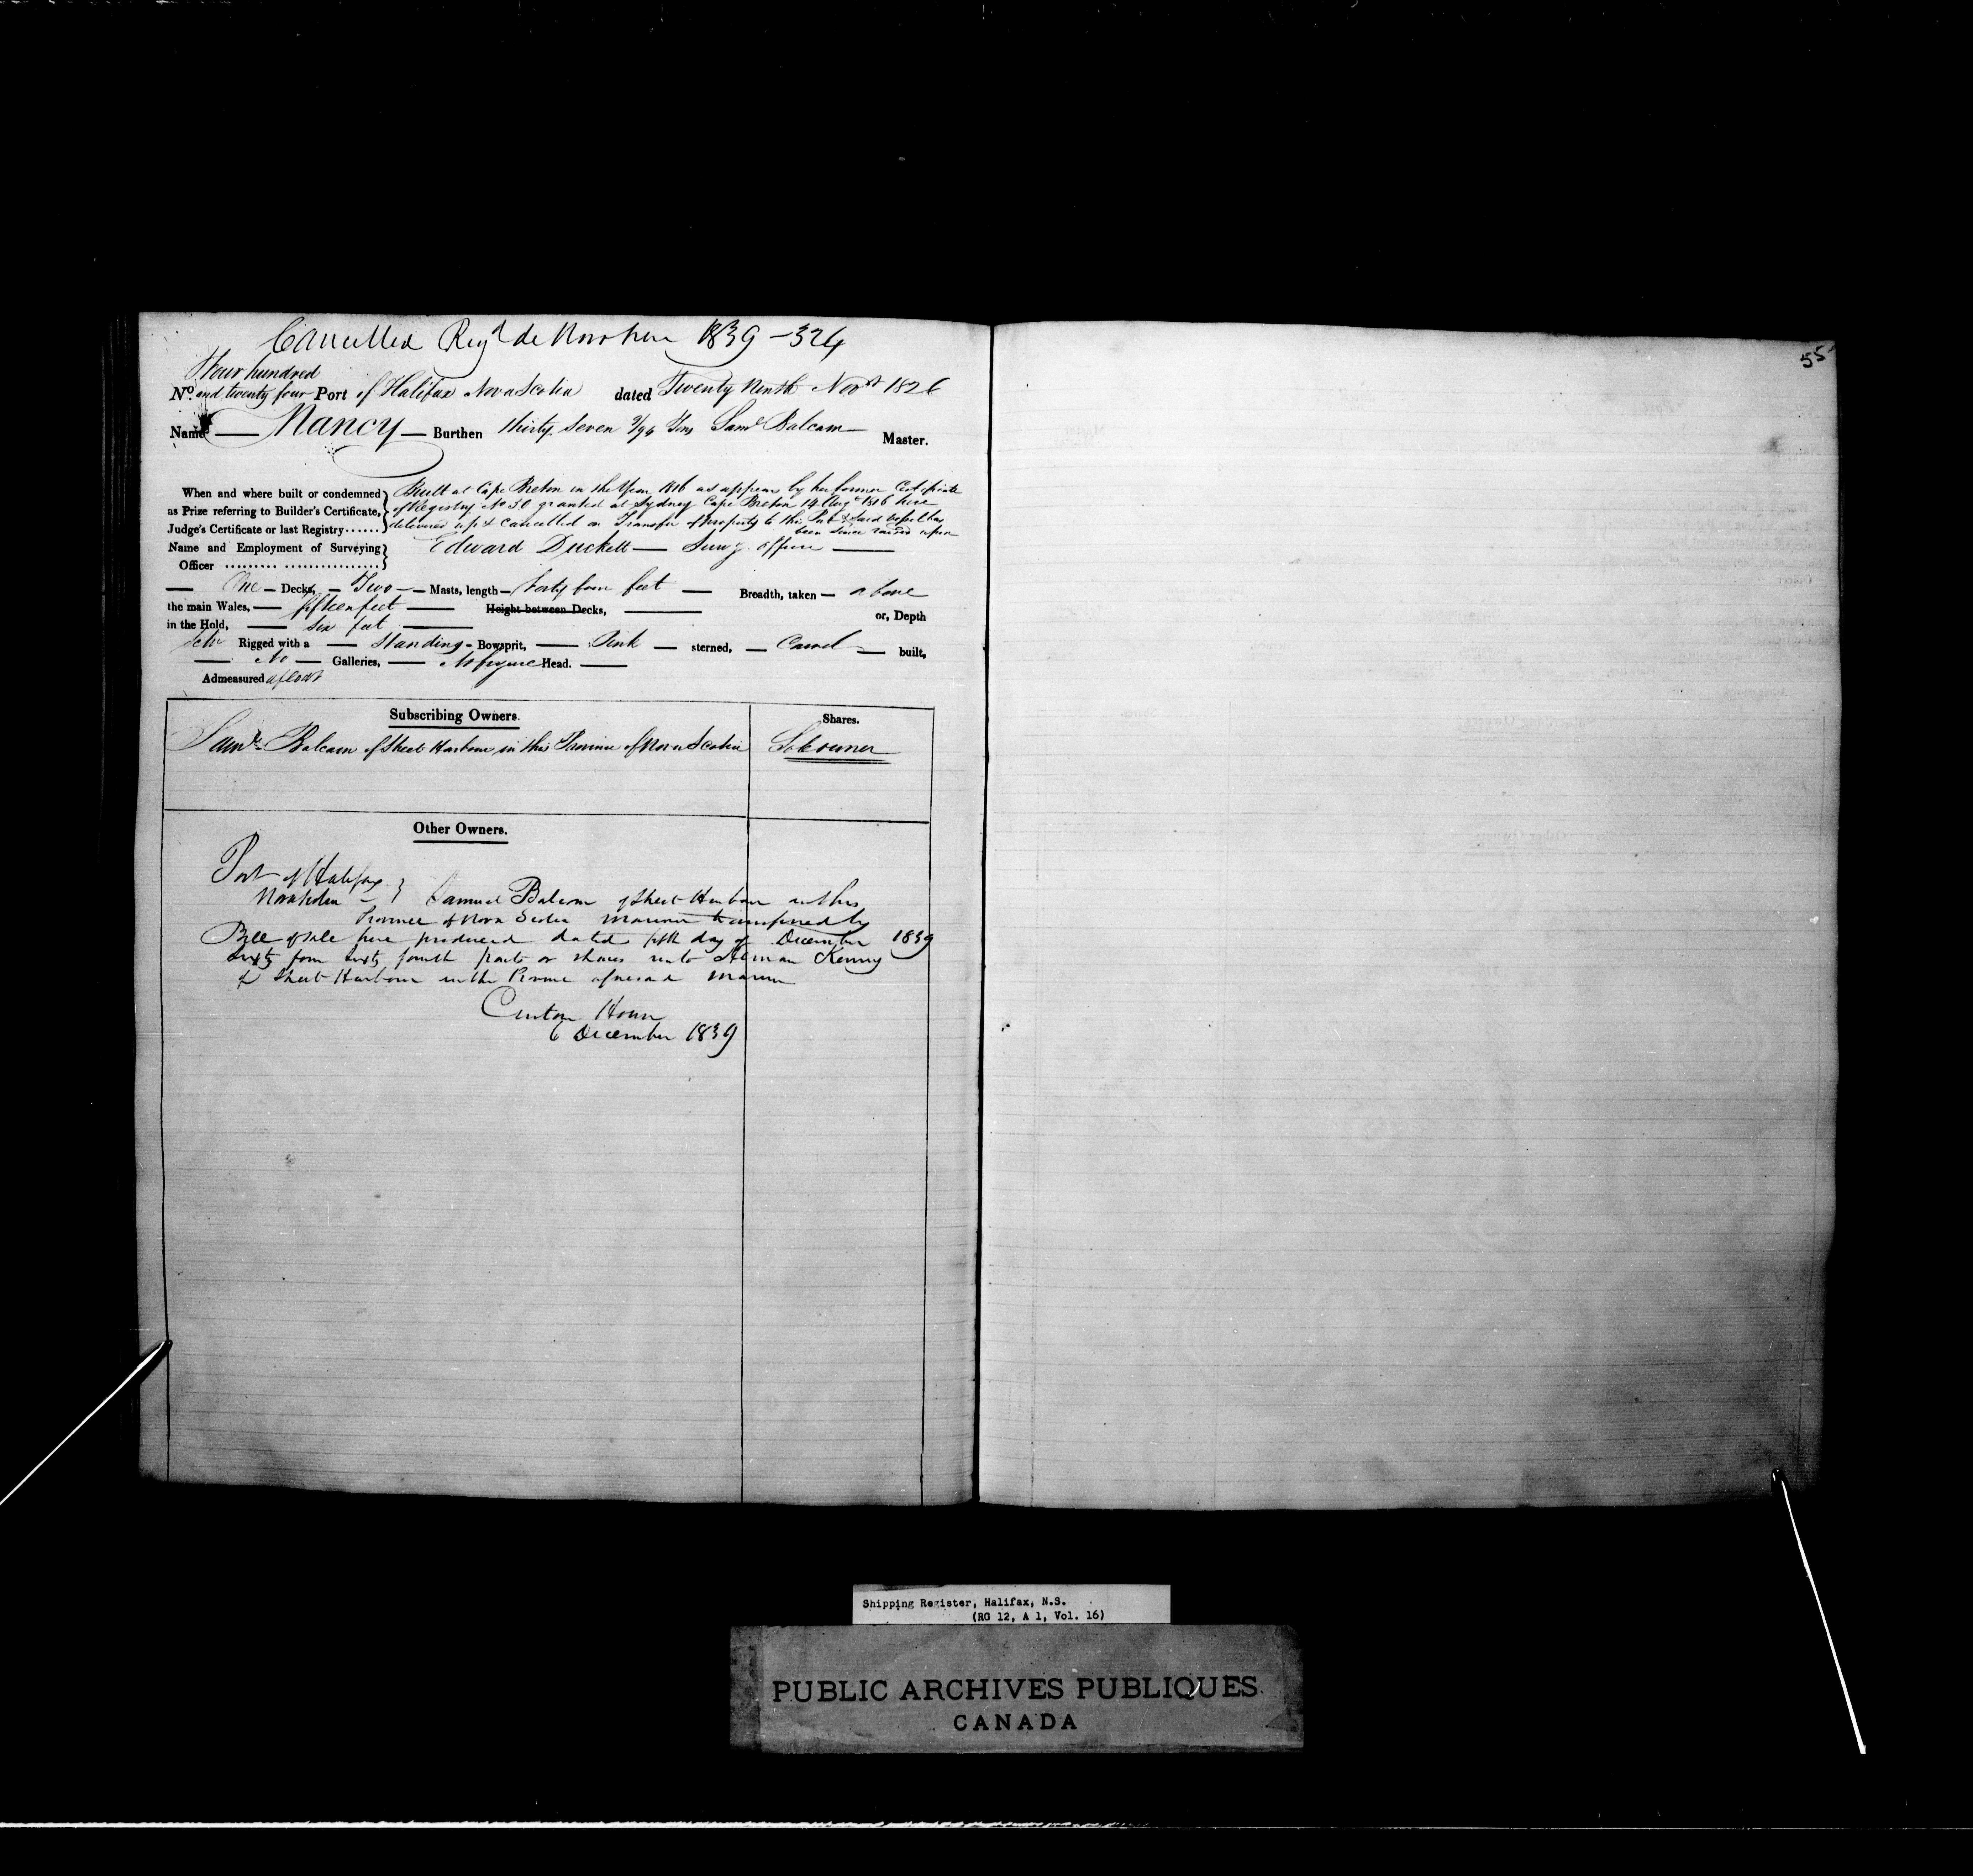 Cancelled Reg^d de Novo here 1839 - 324
Four hundred
N^o. and twenty four Port of Halifax Nova Scotia dated Twenty Ninth Nov^r 1826
Name Nancy Burthen thirty Seven 9/94 Tons Sam^l Balcam Master.
When and where built or condemned Built at Cape Breton in the Year 1816 as appears by her former Certificate
as Prize referring to Builder's Certificate, of Registry No 30 granted at Sydney Cape Breton 14 Aug^t 1816 here
Judge's Certificate or last Registry...... delivered up & Cancelled on Transfer of property to this Port & Said vessel has
been Since raised upon
Name and Employment of Surveying Edward Duckett Surv^g officer
Officer
One Decks, Two Masts, length forty four feet Breadth, taken above
the main Wales, fifteen feet Height between Decks, or, Depth
in the Hold, Six feet
Sch^r Rigged with a Standing Bowsprit, Pink sterned, Carvel built,
No Galleries, No figure Head.
Admeasured afloat
Subscribing Owners. Shares.
Sam^l Balcam of Sheet Harbour in this Province of Nova Scotia Sole owner
Other Owners.
Port of Halifax
Nova Scotia Samuel Balcom of Sheet Harbour in this
Province of Nova Scotia Mariner transferred by
Bill of Sale here produced dated fifth day of December 1839
Sixty four Sixty fourth parts or shares unto Kenny
of Sheet Harbour in the Province aforesaid Mariner
Custom House
6 December 1839
55
Shipping Register, Halifax, N.S.
(RG 12, A 1, Vol. 16)
PUBLIC ARCHIVES PUBLIQUES
CANADA